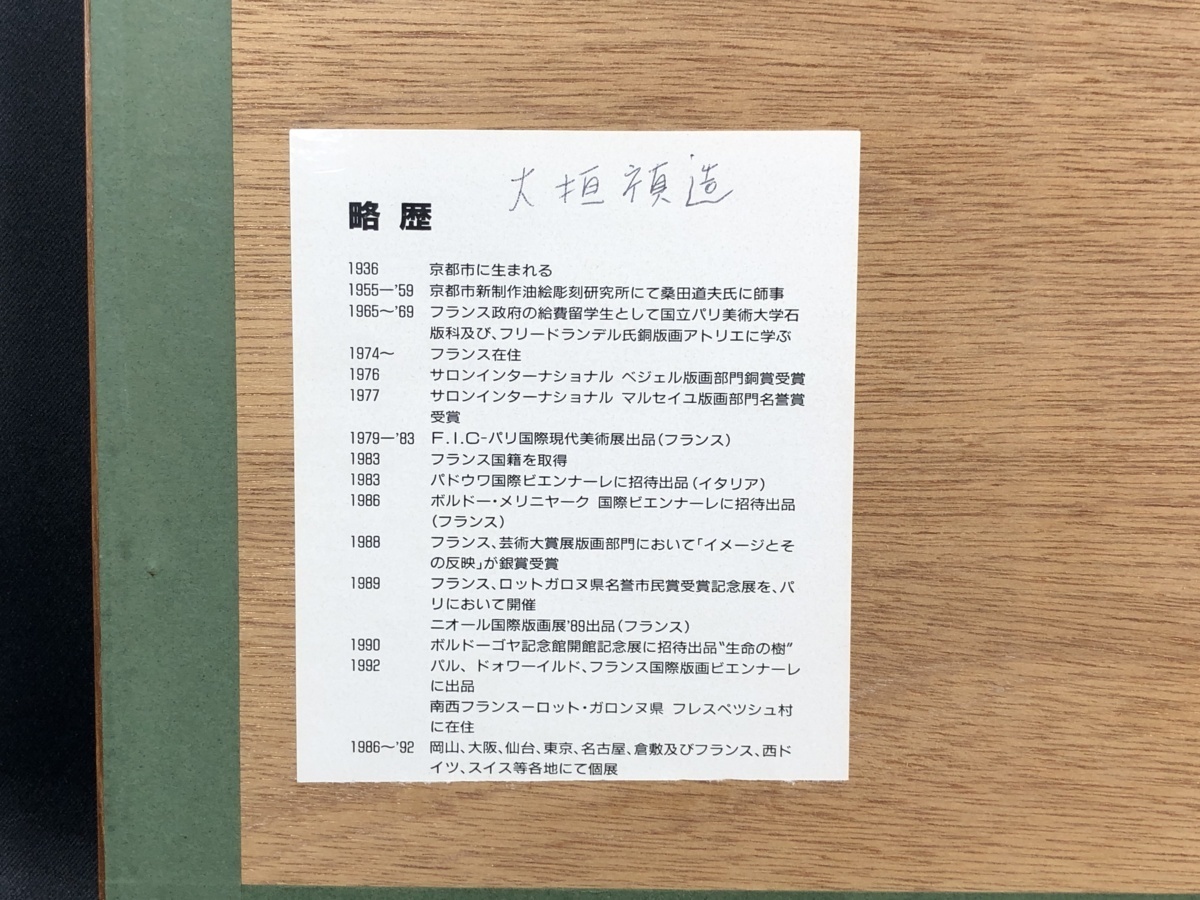 大垣禎造
略歴
1936 京都市に生まれる
1955―'59 京都市新制作油絵彫刻研究所にて桑田道夫氏に師事
1965〜'69 フランス政府の給費留学生として国立パリ美術大学石
版科及び、フリードランデル氏銅版画アトリエに学ぶ
1974〜 フランス在住
1976 サロンインターナショナル ベジェル版画部門銅賞受賞
1977 サロンインターナショナル マルセイユ版画部門名誉賞
受賞
1979―'83 F.I.C-パリ国際現代美術展出品(フランス)
1983 フランス国籍を取得
1983 パドウワ国際ビエンナーレに招待出品(イタリア)
1986 ボルドー・メリニヤーク 国際ビエンナーレに招待出品
(フランス)
1988 フランス、芸術大賞展版画部門において「イメージとそ
の反映」が銀賞受賞
1989 フランス、ロットガロヌ県名誉市民賞受賞記念展を、パ
リにおいて開催
ニオール国際版画展'89出品(フランス)
1990 ボルドーゴヤ記念館開館記念展に招待出品"生命の樹"
1992 バル、ドォワーイルド、フランス国際版画ビエンナーレ
に出品
南西フランスーロット・ガロンヌ県 フレスペツシュ村
に在住
1986〜'92 岡山、大阪、仙台、東京、名古屋、倉敷及びフランス、西ド
イツ、スイス等各地にて個展